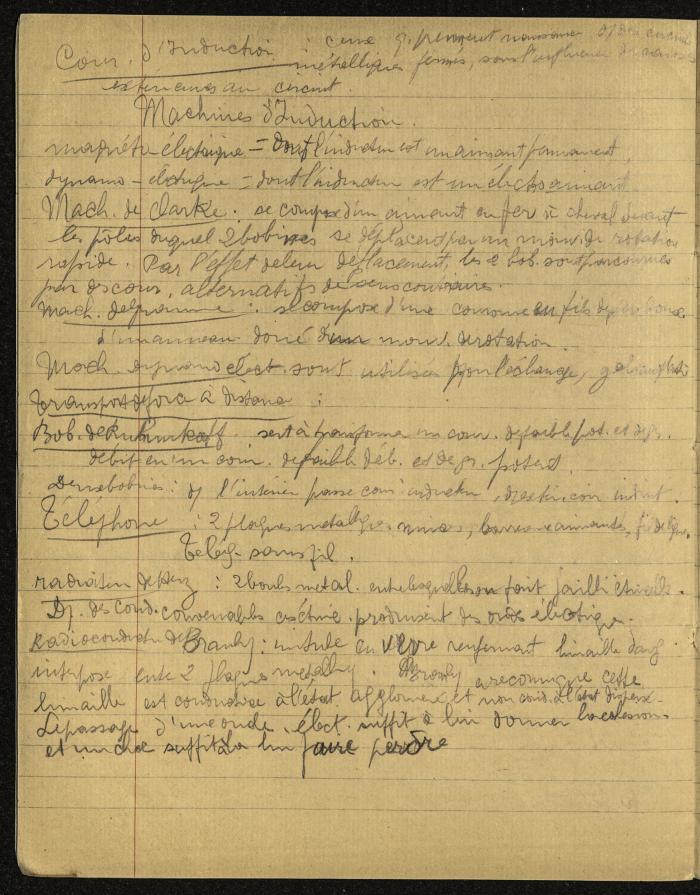 Cour. d'Induction : ceux q. prennent naissance ds un circuit
métalliques fermés, sous l'influence de causes
extérieures au circuit.
Machines d'Induction.
magnéto-électrique = dont l'inducteur est un aimant permanent
dynamo-électrique = dont l'inducteur est un électroaimant
Mach. de Clarke : se compose d'un aimant en fer à cheval devant
les pôles duquel 2 bobines se déplacent par un mouv. de rotation
rapide. Par l'effet de leur déplacement, les 2 bob. sont parcourues
par des cour. alternatifs de sens contraires.
Mach. de Gramme : se compose d'une couronne en fils de
d'un anneau doué d'un mouv. de rotation.
Mach. dynamo élect. sont utilisées pour l'éclairage, galvanoplastie
transport de force à distance :
Bob. de Ruhmkorff sert à transformer un cour. de faible pot. et de gr.
débit en un cour. de faible déb. et de gr. potent.
Deux bobines : ds l'intérieur passe cour inducteur, ds extér. cour induit.
Téléphone : 2 plaques métalliques minces, barres aimantés, fil de ligne.
Télég. sans fil.
radiateur de Herz : 2 boules métal. entre lesquelles on fait jaillir étincelle.
Ds. des cond. convenables ces étinc. produisent des ondes électriq.
Radioconducteur de Branly : un tube en verre renfermant limaille
interposé entre 2 plaques métalliq. Branly a reconnu que cette
limaille est conductrice à l'état aggloméré et non cond. à l'état dispersé.
Le passage d'une onde élect. suffit à lui donner la cohésion
et un choc suffit à la lui faire perdre